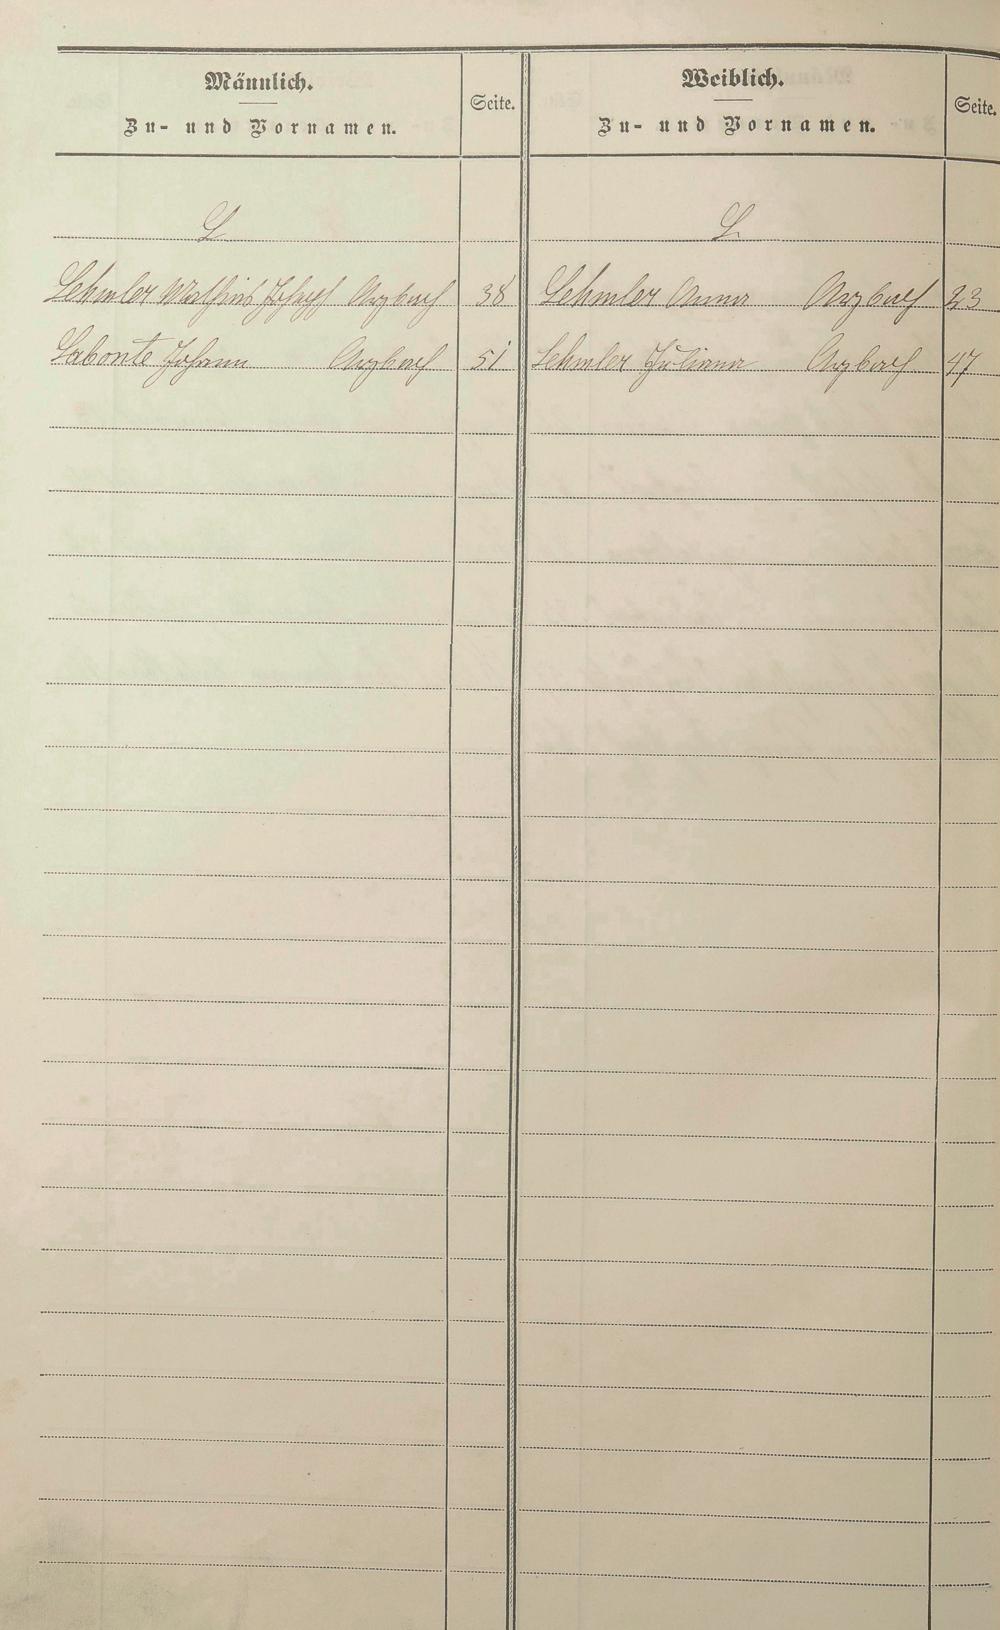 Männlich.
Zu- und Vornamen.
Seite.
Weiblich.
Zu- und Vornamen.
Seite.
L
L
Lehmler Mathias Joseph Arzbach 38
Lehmler Anna Arzbach 23
Labonte Johann Arzbach 51
Lehmler Juliana Arzbach 47